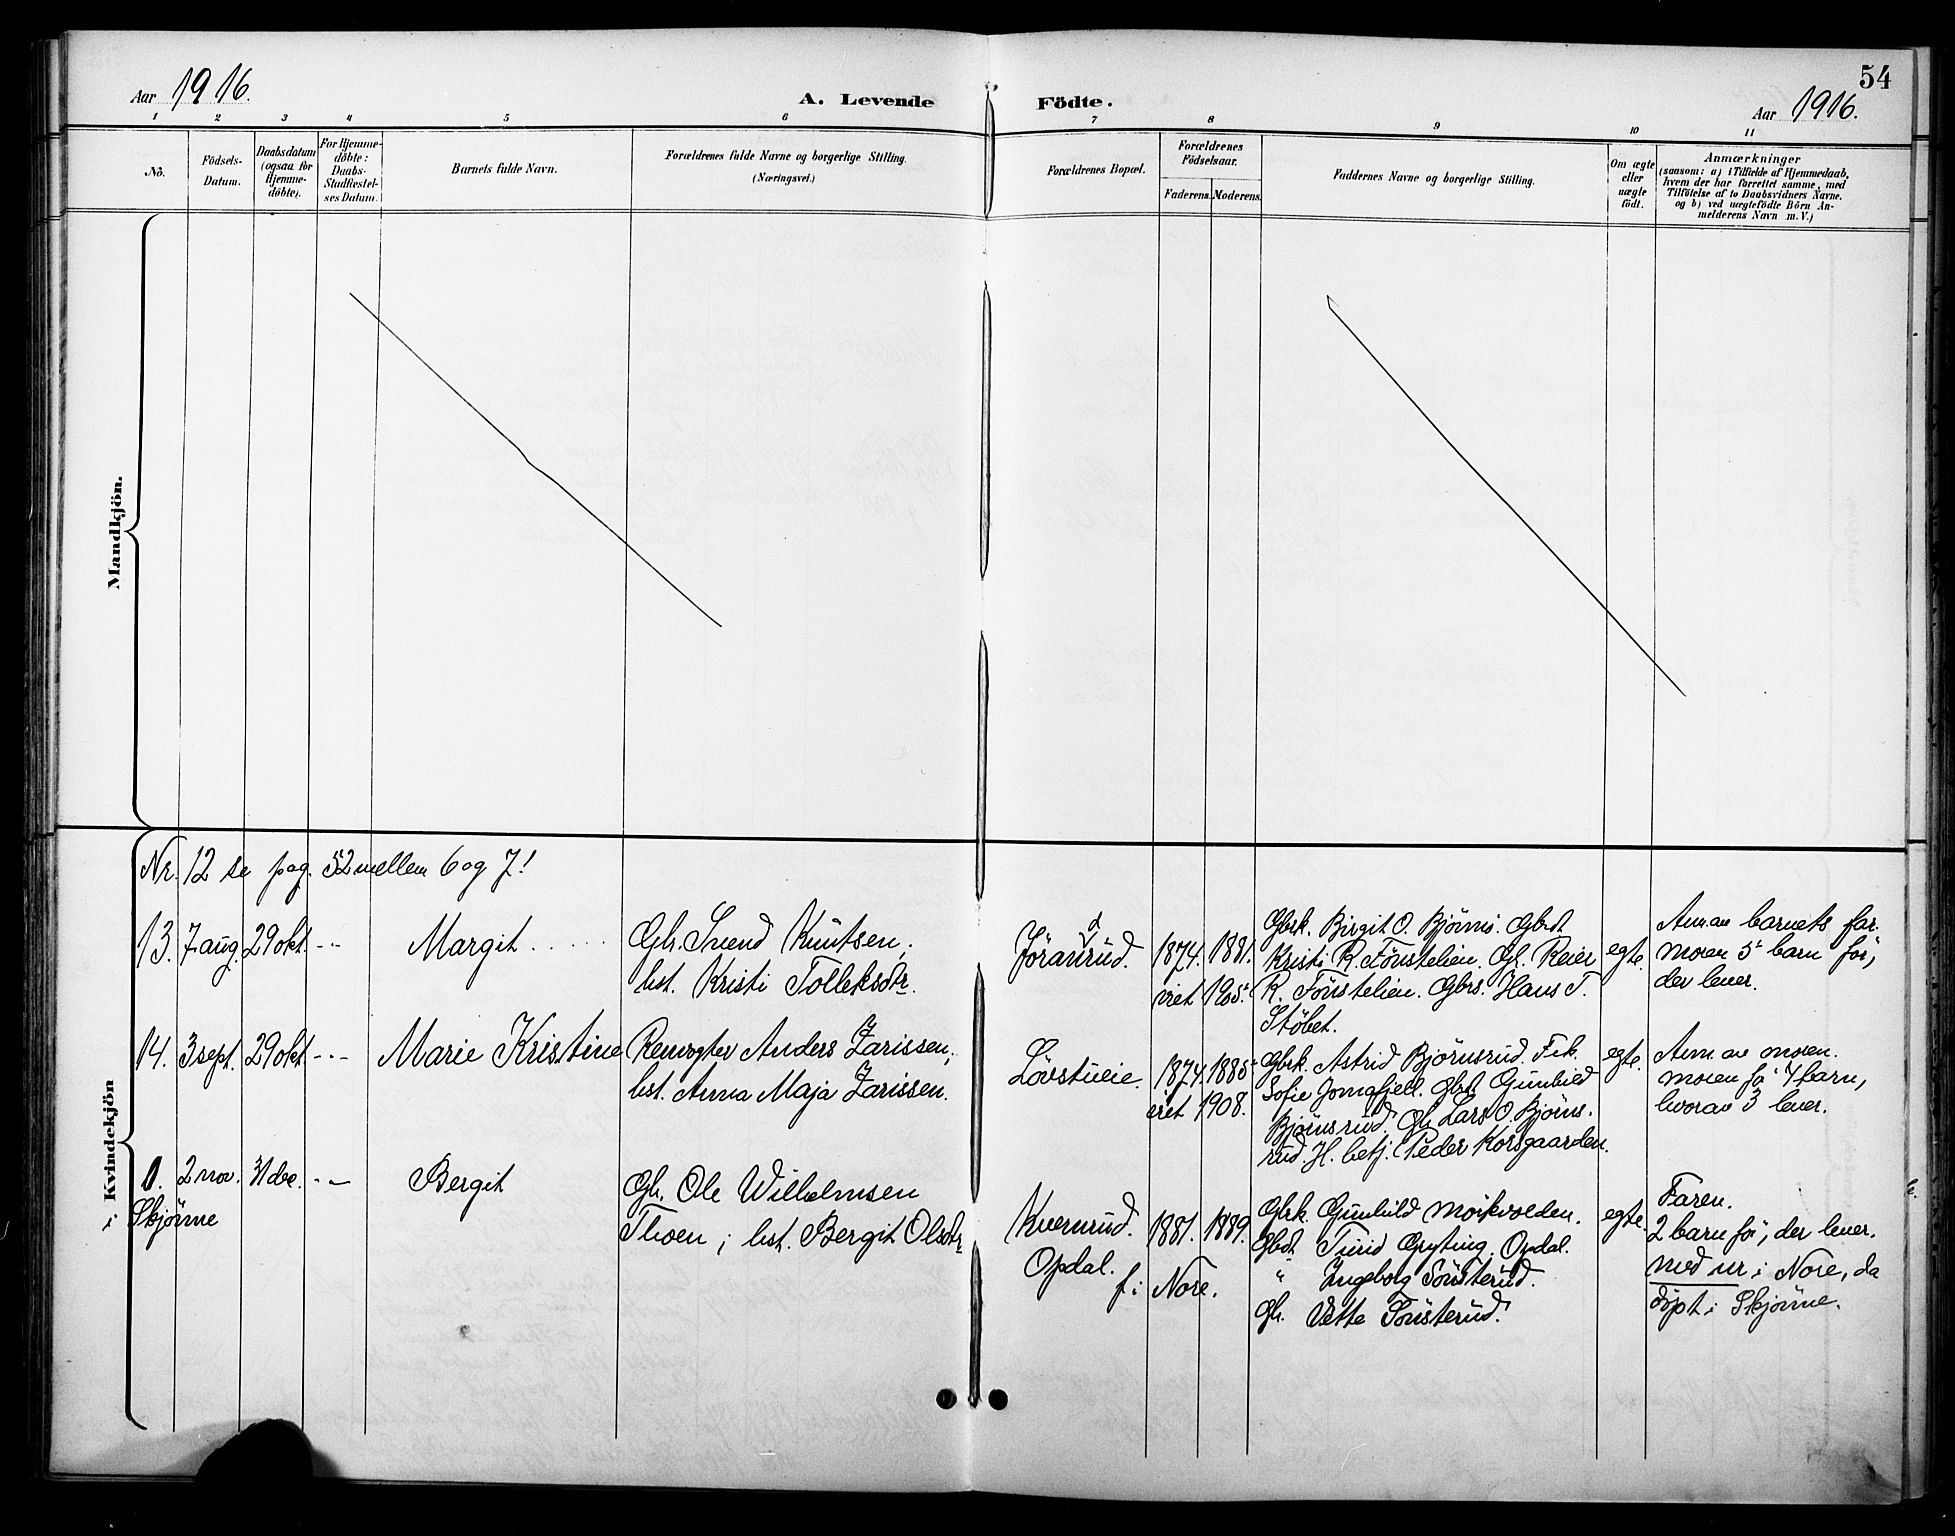 54
Aar 1916.
A. Levende Födte.
Aar 1916.
1 2 3 4 5 6 7 8 9 10 11
No.
Födsels-
Datum.
Daabsdatum
(ogsaa for
Hjemme-
döbte).
For Hjemme-
döbte:
Daabs-
Stadfæstel-
ses Datum.
Barnets fulde Navn.
Forældrenes fulde Navne og borgerlige Stilling.
(Næringsvei.)
Forældrenes Bopæl.
Forældrenes
Födselsaar.
Faderens. Moderens.
Faddernes Navne og borgerlige Stilling.
Om ægte
eller
uægte
födt.
Anmærkninger
(saasom: a) i Tilfælde af Hjemmedaab,
hvem der har forrettet samme, med
Tilföielse af to Daabsvidners Navne.
og b) ved uægtefödte Börn An-
melderens Navn m. V.)
Mandkjön.
Kvindekjön
Nr. 12 se pag. 52 mellem 6 og 7!
13. 7 aug. 29 okt. -"- Margit
Gbr. Svend Knutsen,
hst. Kristi Tolleksdtr.
Jöranrud.
1874. 1881.
viet 1905.
Gbrk. Birgit O. Bjørns. Gbdt.
Kristi R. Fönstelien. Gl. Reier
R. Fönstelien. Gbrs. Hans T.
Støbet.
egte.
Anm av barnets far.
moren 5 barn før,
der lever.
14. 3 sept. 29 okt. -"- Marie Kristine
Renvogter Anders Zarissen,
hst. Anna Maja Zarissen.
Løvstueie.
1874. 1885
viet 1908.
Gbrk. Astrid Bjørnsrud. Frk.
Sofie Jomafjell. Gbdt. Gunhild
Bjørnsrud. Gl. Lars O. Bjørns-
rud. H. betj. Peder Korsgaarden.
egte.
Anm. av moren.
moren før 4 barn,
hvorav 3 lever.
0. 2 nov. 31 dec. -"- Bergit
i Skjønne
Gbr. Ole Wilhelmsen
Thoen; hst. Bergit Olsdtr.
Kvernrud.
Opdal.
1881. 1889.
f. i Nore.
Gbrk. Gunhild Moikvolden.
Gbdt. Turid Gryting. Opdal.
" Ingeborg Tønsterud.
Gbr. Vette Tønsterud.
egte.
Faren.
2 barn før, der lever.
med nr i Nore, da
døpt i Skjønne.